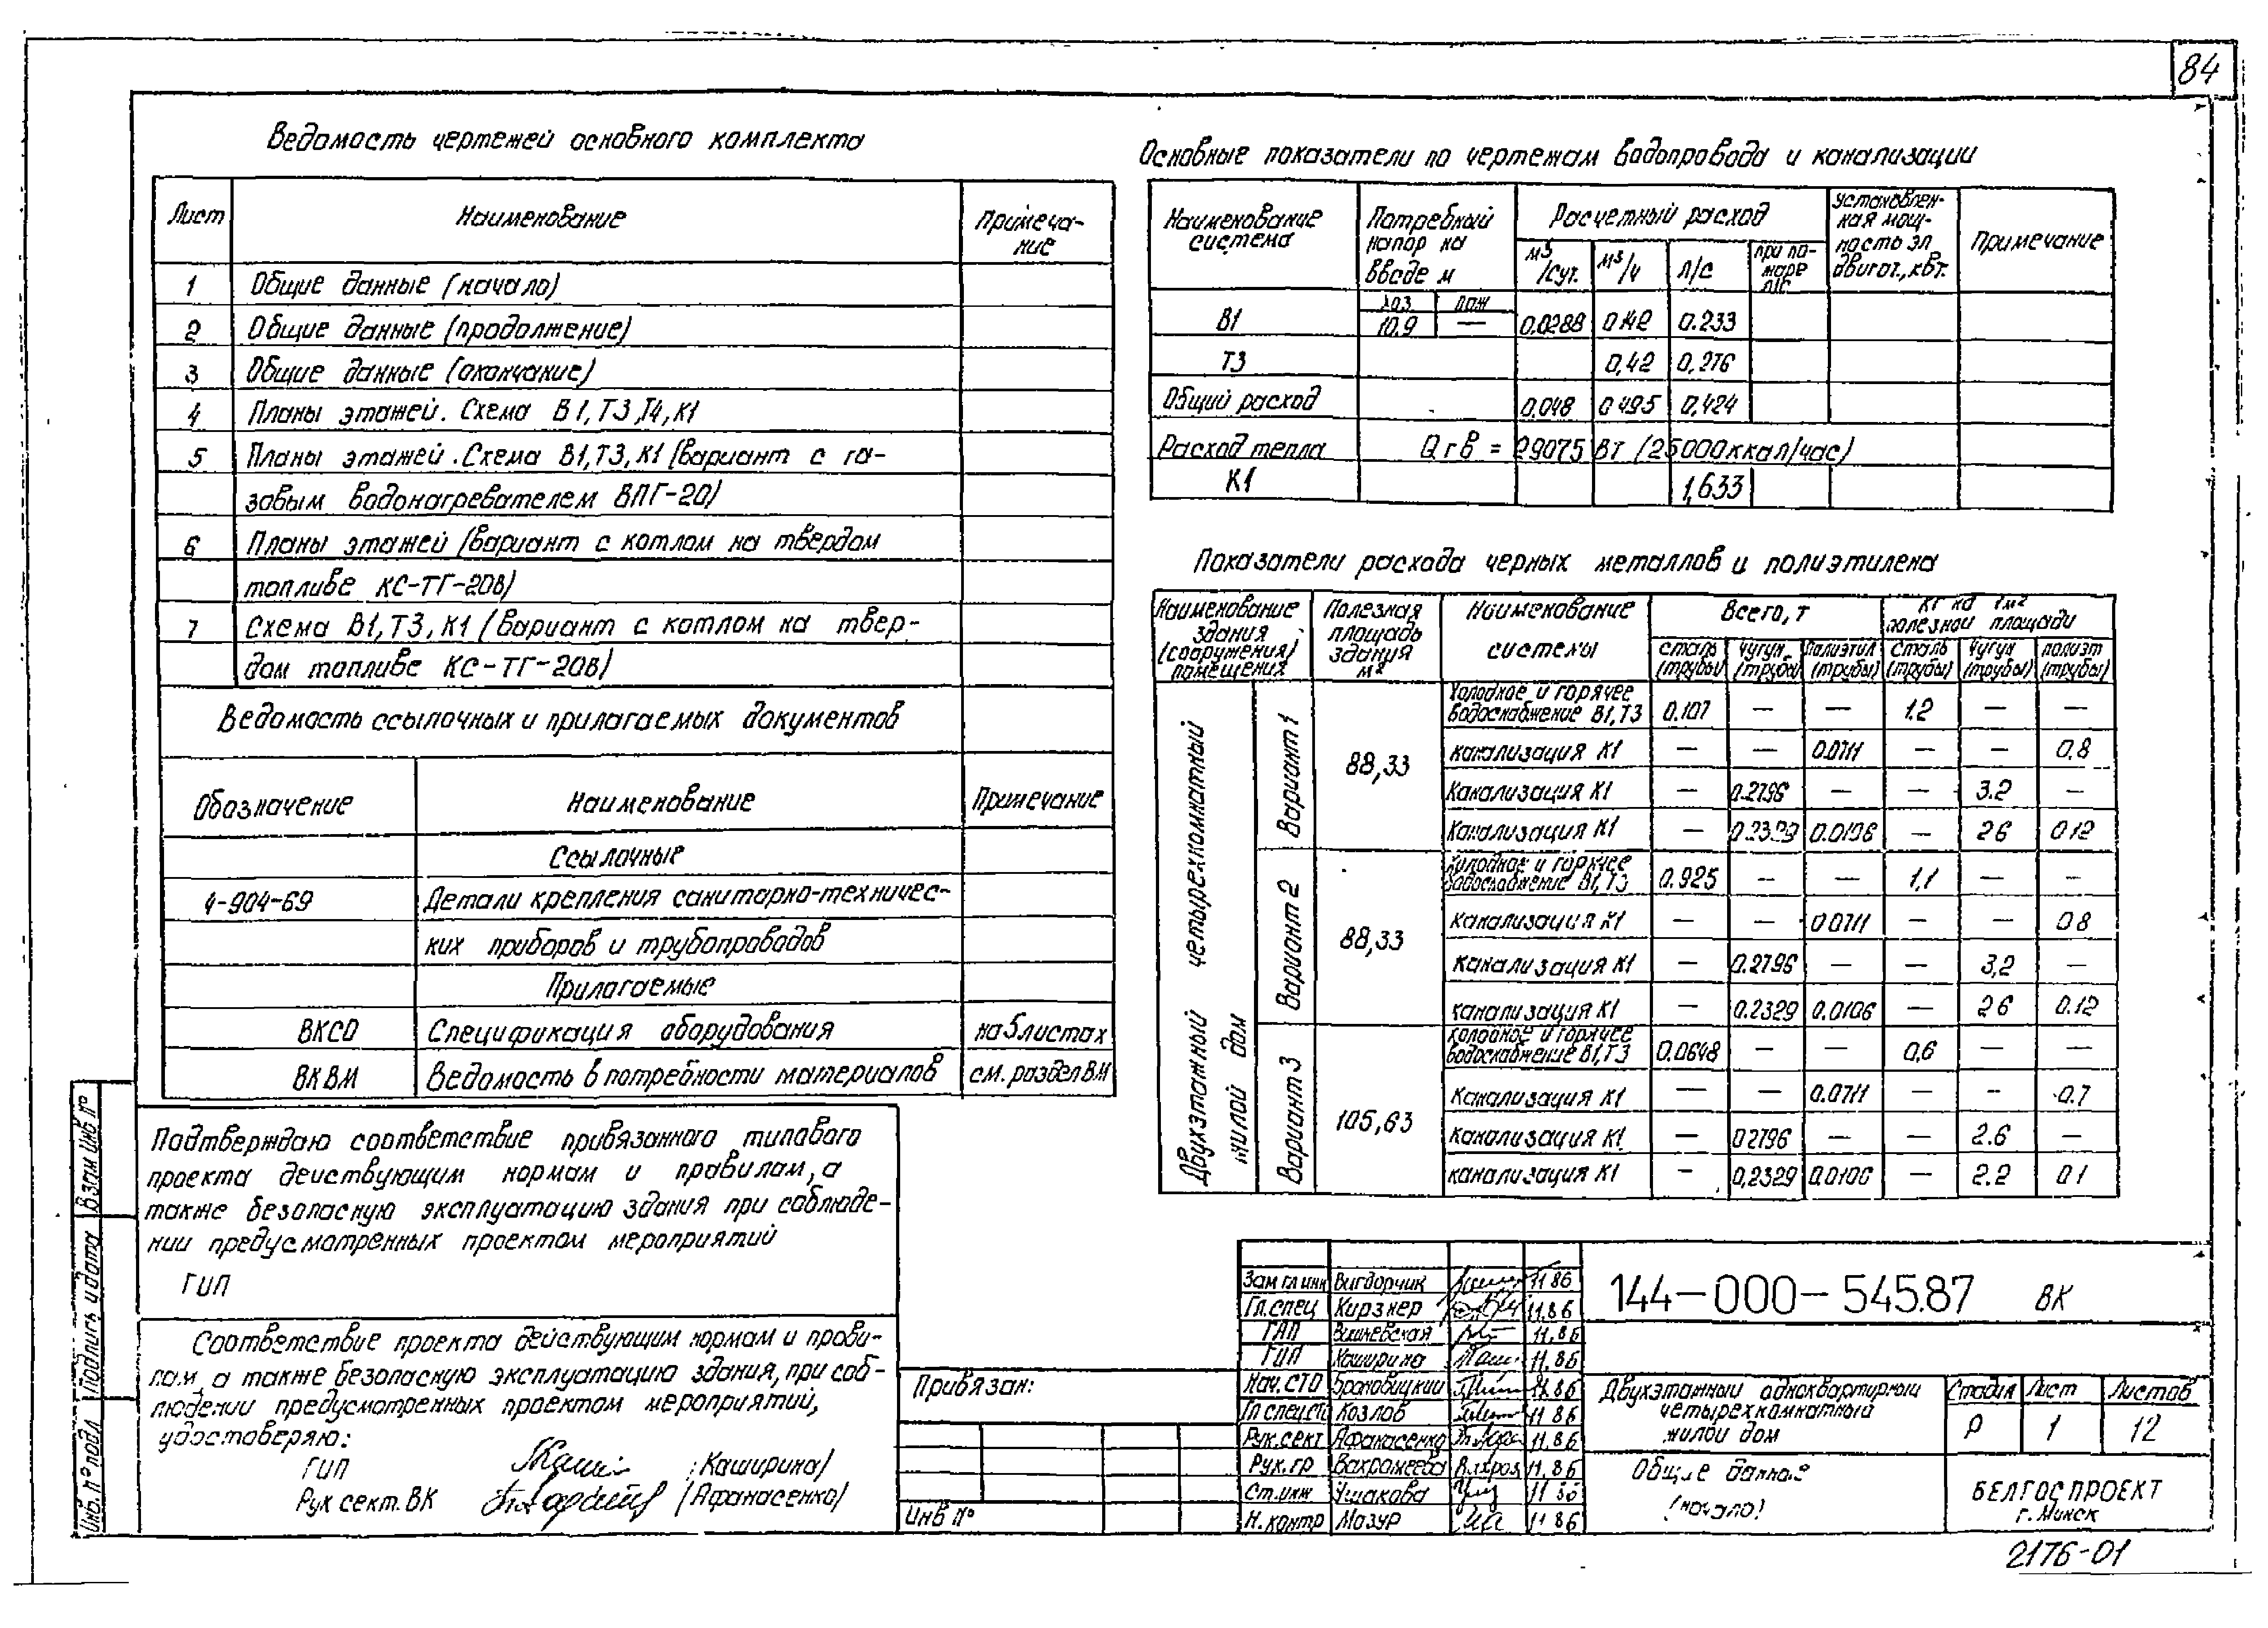 84
Ведомость чертежей основного комплекта
Лист Наименование Примеча-
ние
1 Общие данные (начало)
2 Общие данные (продолжение)
3 Общие данные (окончание)
4 Планы этажей. Схема В1, Т3, Т4, К1
5 Планы этажей. Схема В1, Т3, К1 (вариант с га-
зовым водонагревателем ВПГ-20)
6 Планы этажей (вариант с котлом на твердом
топливе КС-ТГ-20в)
7 Схема В1, Т3, К1 (вариант с котлом на твер-
дом топливе КС-ТГ-20в)
Ведомость ссылочных и прилагаемых документов
Обозначение Наименование Примечание
Ссылочные
4-904-69 Детали крепления санитарно-техничес-
ких приборов и трубопроводов
Прилагаемые
ВКСО Спецификация оборудования на 5 листах
ВК ВМ Ведомость в потребности материалов см. раздел ВМ
Подтверждаю соответствие привязанного типового
проекта действующим нормам и правилам, а
также безопасную эксплуатацию здания при соблюде-
нии предусмотренных проектом мероприятий
ГИП
Соответствие проекта действующим нормам и прави-
лам, а также безопасную эксплуатацию здания, при соб-
людении предусмотренных проектом мероприятий,
удостоверяю:
ГИП (Каширина)
Рук сект. ВК (Афанасенко)
Взам инв №
Подпись и дата
Инв. № подл
Основные показатели по чертежам водопровода и канализации
Наименование
система
Потребный
напор на
вводе м
Расчетный расход
м3
/сут. м3/ч л/с при по-
жаре
л/с
установлен-
ная мощ-
ность эл
двигат., квт.
Примечание
хоз пож
В1 10.9 — 0.0288 0.42 0.233
Т3 0,42 0,276
Общий расход 0.048 0.495 0,424
Расход тепла Qгв = 29075 Вт (25000 ккал/час)
К1 1,633
Показатели расхода черных металлов и полиэтилена
Наименование
здания
(сооружения)
помещения
Полезная
площадь
здания
м2
Наименование
системы
Всего, т
кг на 1м2
полезной площади
сталь
(трубы) чугун
(трубы) полиэтил
(трубы) сталь
(трубы) чугун
(трубы) полиэт
(трубы)
Двухэтажный четырехкомнатный
жилой дом
Вариант 1 88,33
Холодное и горячее
водоснабжение В1, Т3 0.107 — — 1.2 — —
канализация К1 — — 0.0711 — — 0,8
Канализация К1 — 0.2796 — — 3.2 —
Канализация К1 — 0.2329 0.0106 — 2 6 0.12
Вариант 2 88,33
Холодное и горячее
водоснабжение В1, Т3 0.925 — — 1,1 — —
Канализация К1 — — 0.0711 — — 0 8
Канализация К1 — 0.2796 — — 3,2 —
канализация К1 — 0.2329 0.0106 — 2 6 0.12
Вариант 3 105,63
Холодное и горячее
водоснабжение В1, Т3 0.0648 — — 0,6 — —
Канализация К1 — — 0.0711 — — 0.7
Канализация К1 — 0 2796 — — 2.6 —
канализация К1 - 0,2329 0.0106 — 2.2 0 1
Привязан:
Инв №
Зам гл инж Вигдорчик 11 86
Гл. спец Кирзнер 11.86
ГАП Вишневская 11.86
ГИП Каширина 11.86
Нач. СТО Брановицкий 11.86
Гл спец СТО Козлов 11 86
Рук. сект Афанасенко 11.86
Рук. гр Вахромеева 11.86
Ст. инж Ушакова 11 86
Н. контр Мазур 11 86
144-000-545.87 ВК
Двухэтажный одноквартирный
четырехкомнатный
жилой дом
Стадия Лист Листов
Р 1 12
Общие данные
(начало)
БЕЛГОСПРОЕКТ
г. Минск
2176-01